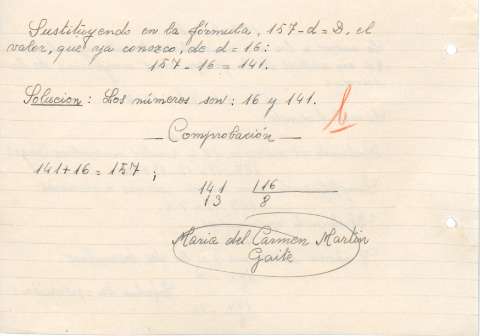 Sustituyendo en la fórmula, 157-d=D, el
valor, que ya conozco, de d=16:
157-16=141.
Solucion: Los números son: 16 y 141.
b
Comprobación
141+16=157;
141 16
13 8
Maria del Carmen Martin
Gaite